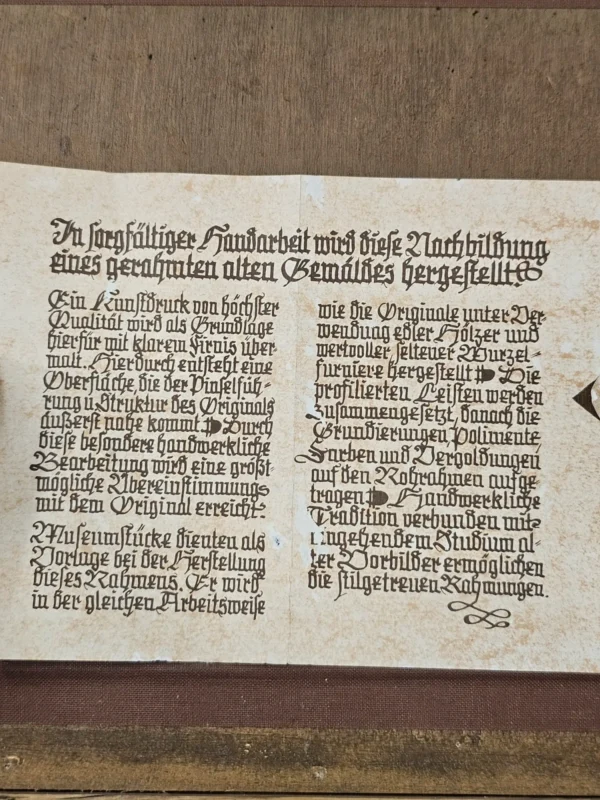 In sorgfältiger Handarbeit wird diese Nachbildung
eines gerahmten alten Gemäldes hergestellt.
Ein Kunstdruck von höchster
Qualität wird als Grundlage
hierfür mit klarem Firnis über-
malt. Hierdurch entsteht eine
Oberfläche, die der Pinselfüh-
rung u. Struktur des Originals
äußerst nahe kommt. Durch
diese besondere handwerkliche
Bearbeitung wird eine größt-
mögliche Übereinstimmung
mit dem Original erreicht.
Museumstücke dienten als
Vorlage bei der Herstellung
dieses Rahmens. Er wird
in der gleichen Arbeitsweise
wie die Originale unter Ver-
wendung edler Hölzer und
wertvoller, seltener Wurzel-
furniere hergestellt. Die
profilierten Leisten werden
zusammengesetzt, danach die
Grundierungen, Polimente
Farben und Vergoldungen
auf den Rohrahmen aufge
tragen. Handwerkliche
Tradition verbunden mit
eingehendem Studium al-
ter Vorbilder ermöglichen
die stilgetreuen Rahmungen.